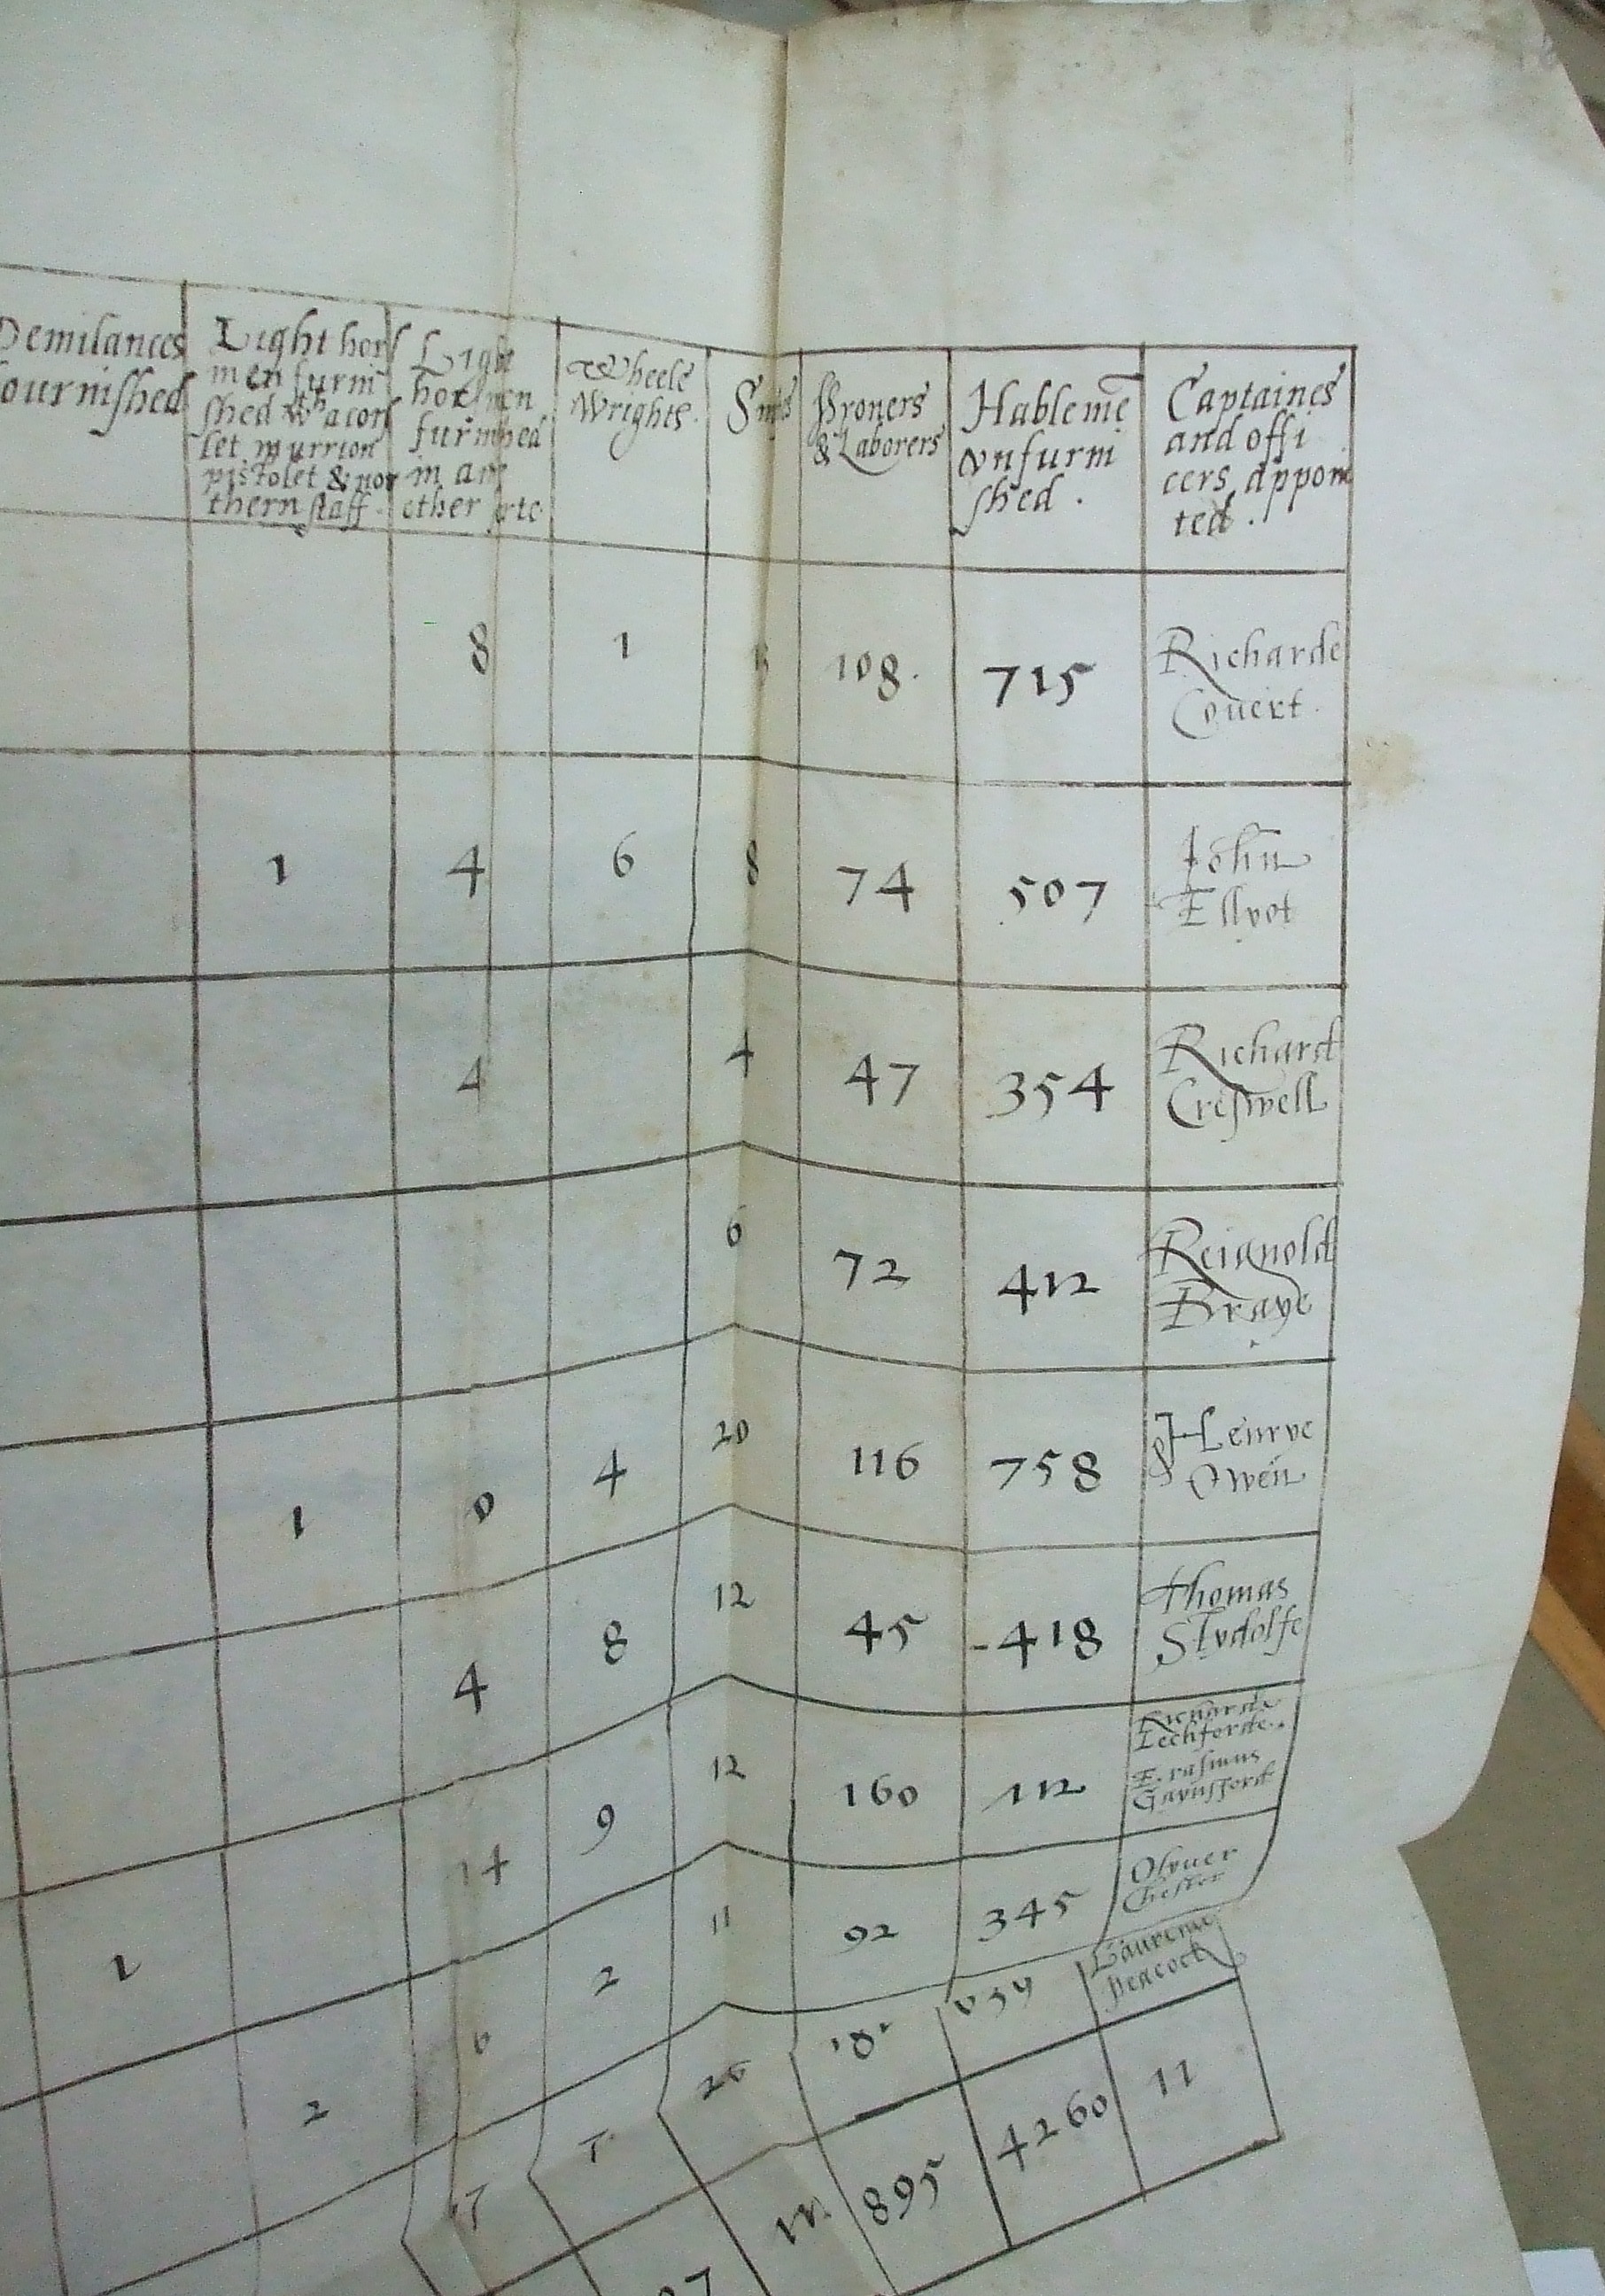 Demilances
fournished
Light hors
men furni
shed wth a cors
let murrion
pistolet & nor
thern staff.
Light
horsmen
furnished
in an
other sorte
Wheele
Wrights.
Smits
Pyoners
& Laborers
Hable mē
vnfurni
shed.
Captaines
and offi
cers appoin
ted.
8 1 108. 715 Richarde
Couert.
1 4 6 8 74 507 John
Ellyot
4 4 47 354 Richard
Creswell
6 72 412 Reignold
Braye
1 0 4 20 116 758 Henrye
Owen
4 8 12 45 -418 Thomas
Stydolfe
1 14 9 12 160 112 Richarde
Lechforde.
Erasmus
Gaynsford
2 2 11 92 345 Olyuer
Chester
26 Laurence
peacock
895 4260 11